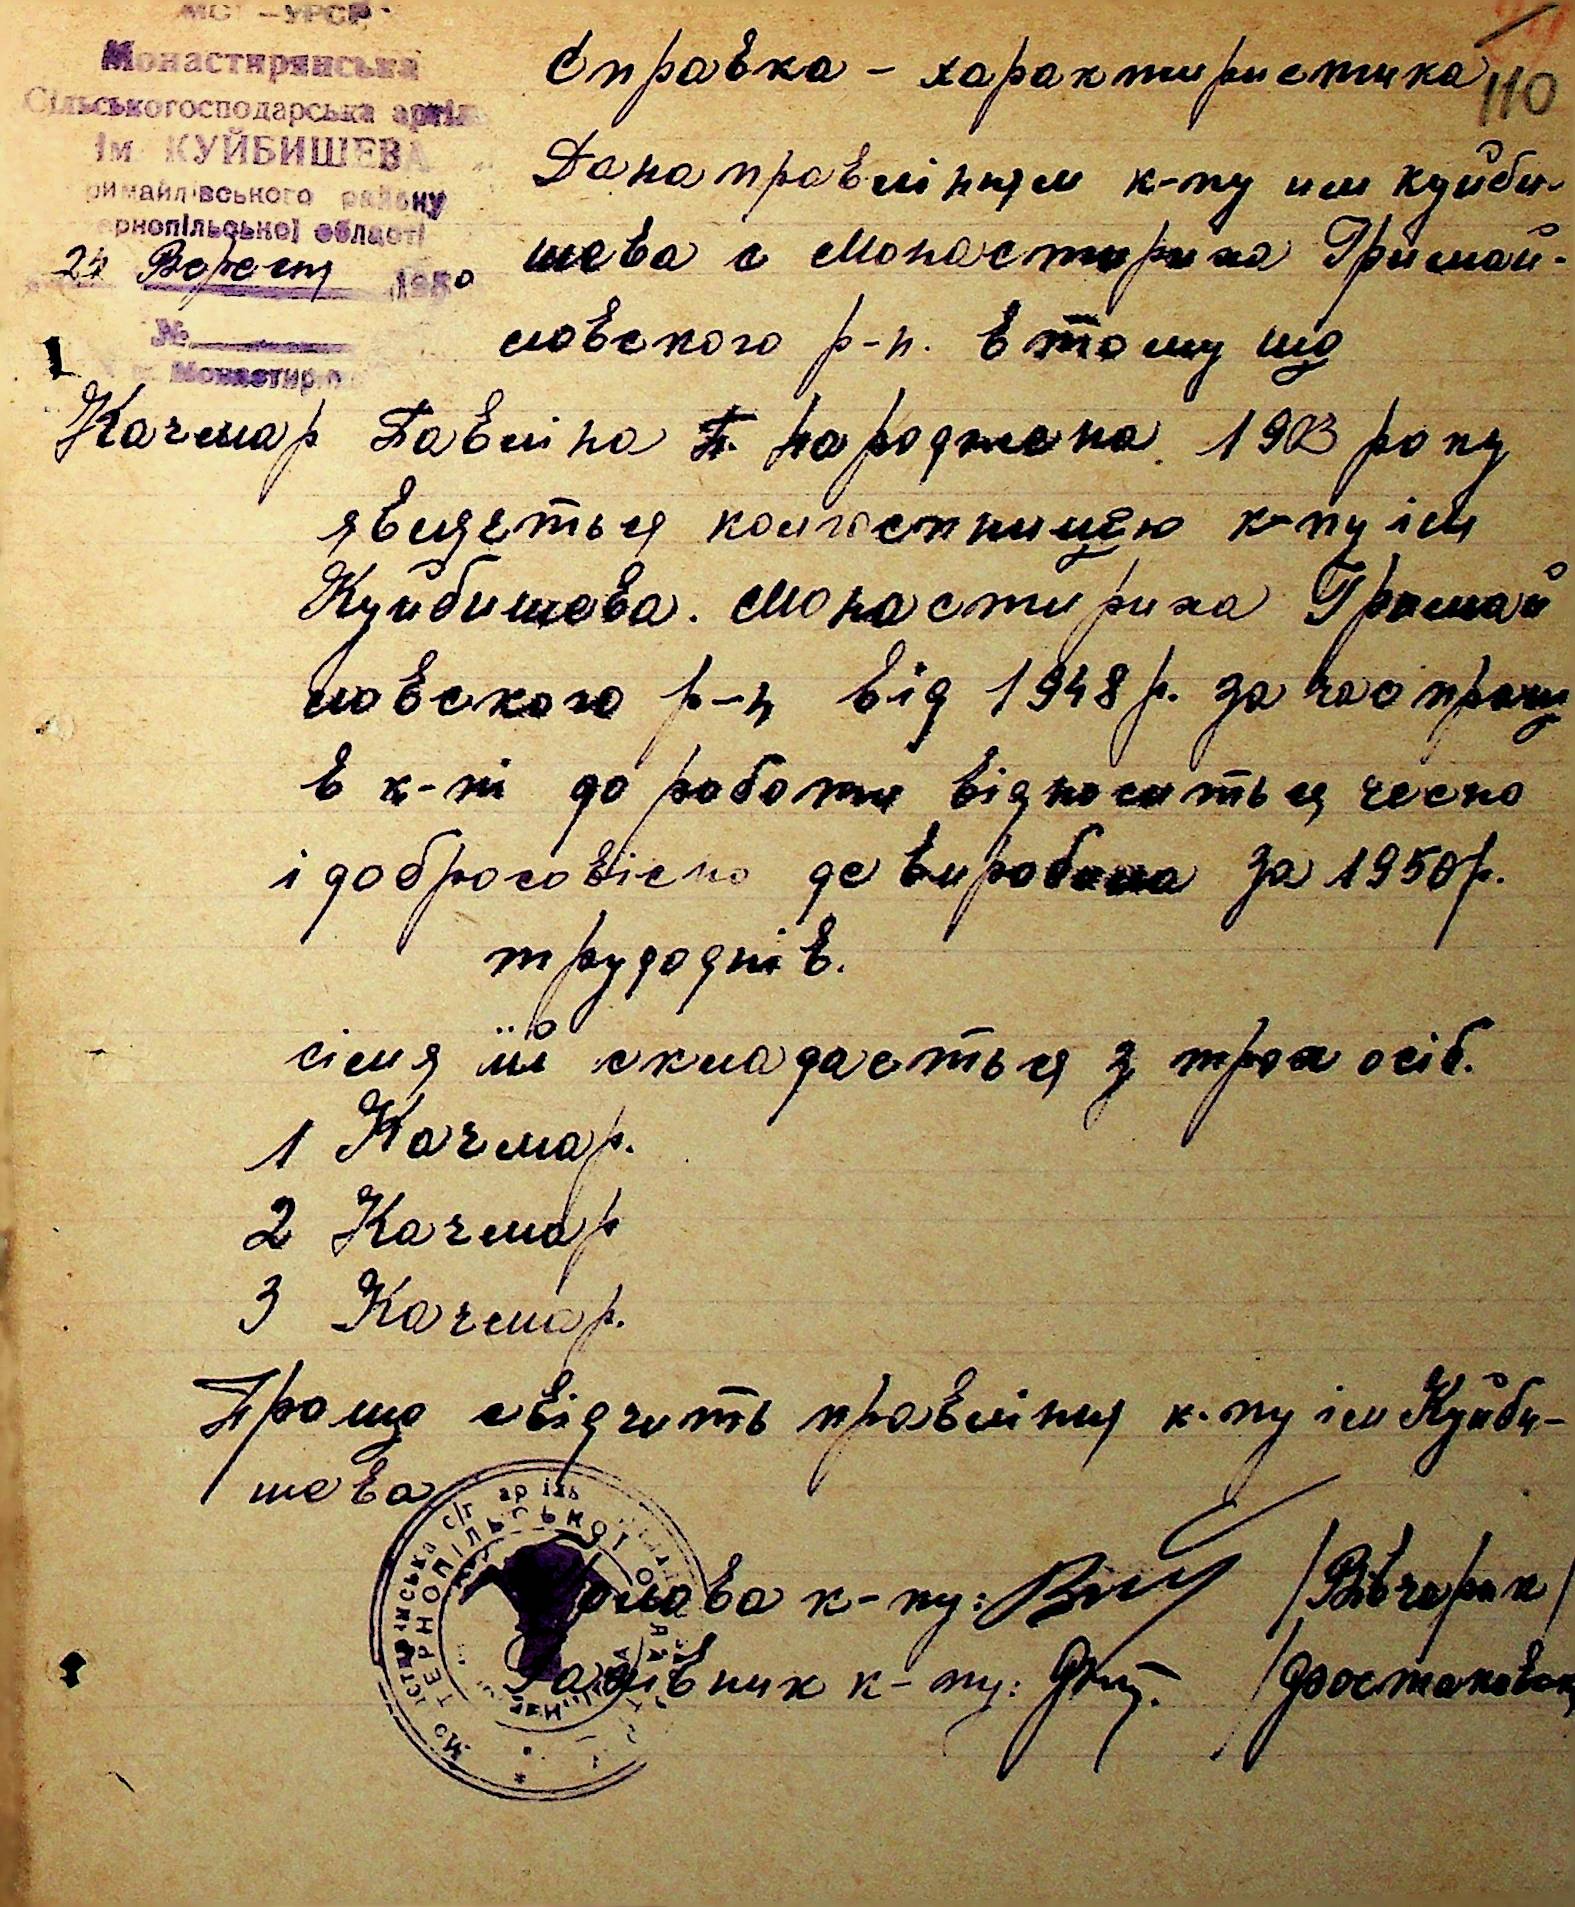 МСГ – УРСР
Монастирянська
Сільськогосподарська артіль
Ім КУЙБИШЕВА
римайлівського району
ернопільської області
24 Вересня 1950
№
Монастир
110
Справка – характиристика
Дана правлінням к-пу им Куйби-
шева с Монастириха Гримай-
ловского р-н. в тому що
Качмар Павліна П. народжена 1903 року
являеться колгоспницею к-пу ім
Куйбишева. Монастириха Гримай
ловского р-н від 1948 р. за час праци
в к-пі до работи відноситься чесно
і добросовісно де виробила за 1950 р.
трудоднів.
сімя її складаеться з трох осіб.
1 Качмар.
2 Качмар
3 Качмар.
Про що свідчить правління к-пу ім Куйби-
шева
Голова к-пу: /Вівчарик/
Рахівник к-пу:
ТЕРНОПІЛЬСЬКОЇ